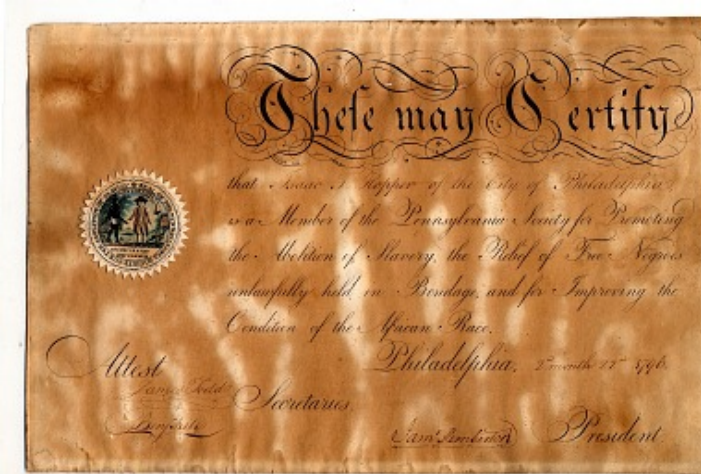 Theſe may Certify
that Isaac T. Hopper of the City of Philadelphia
is a Member of the Pennsylvania Society for Promoting
the Abolition of Slavery, the Relief of Free Negroes
unlawfully held in Bondage, and for Improving the
Condition of the African Race.
Philadelphia, 2 month 1796.
Attest
James Todd
Secretaries.
President.